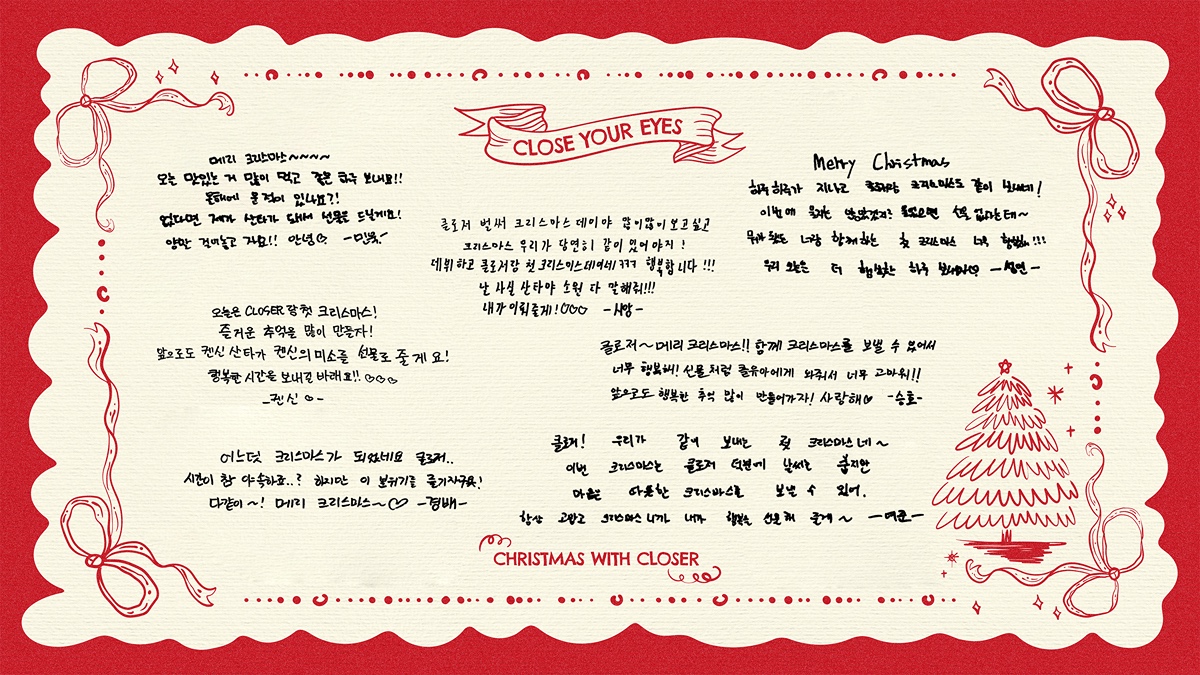 CLOSE YOUR EYES
메리 크리스마스~~~~
오늘 맛있는 거 많이 먹고 좋은 하루 보내요!!
없다면 제가 산타가 돼서 선물을 드릴게요!
양말 걸어놓고 자요!! 안녕♡ -민욱-
클로저 벌써 크리스마스데이야 많이많이 보고싶고
크리스마스 우리가 당연히 같이 있어야지!
데뷔하고 클로저랑 첫 크리스마스데이네 ㅋㅋㅋ 행복합니다 !!!
난 사실 산타야 소원 다 말해줘!!!
내가 이뤄줄게!♡♡♡
Merry Christmas
하루하루가 지나고 클로저랑 크리스마스도 같이 보내네!
이번에 울었으면 선물 없는데~
너랑 함께하는 첫 크리스마스 너무 행복해!!!
우리 오늘은 더 행복한 하루 보내자♡ -성민-
오늘은 CLOSER랑 첫 크리스마스!
즐거운 추억을 많이 만들자!
앞으로도 켄신 산타가 켄신의 미소를 선물로 줄게요!
행복한 시간을 보내길 바래요!! ♡♡♡
-켄신
클로저~메리크리스마스!! 함께 크리스마스를 보낼 수 있어서
너무 행복해! 선물처럼 클유아에게 와줘서 너무 고마워!!
앞으로도 행복한 추억 많이 만들어가자! 사랑해♡ -승호-
어느덧 크리스마스가 되었네요 클로저..
시간이 참 야속하죠..? 하지만 이 분위기를 즐기자구요!
다같이~! 메리 크리스마스~♡ -경배-
클로저! 우리가 같이 보내는 첫 크리스마스네~
이번 크리스마스는 클로저 덕분에 날씨는 춥지만
마음은 따뜻한 크리스마스를 보낼 수 있어.
항상 고맙고 크리스마스니까 내가 행복을 선물해 줄게~ -여준-
CHRISTMAS WITH CLOSER